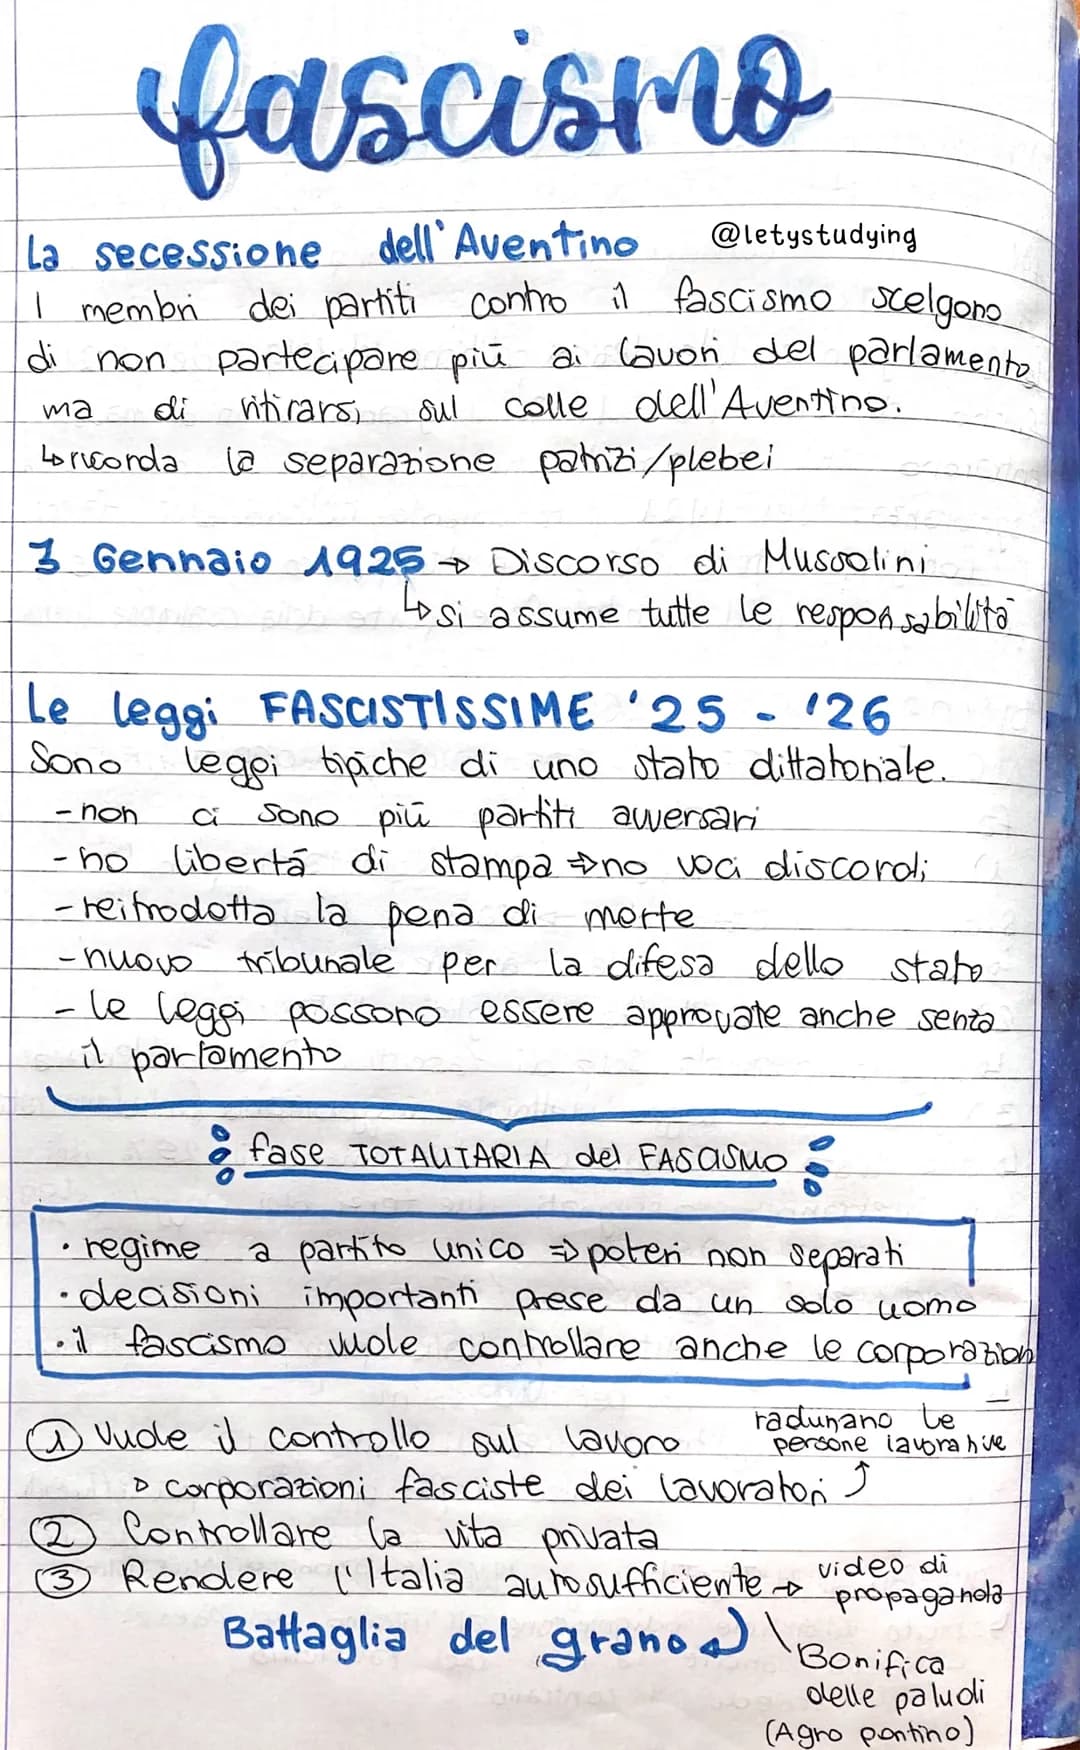 fascismo
La secessione dell'Aventino @letystudying
I membri dei partiti contro il fascismo scelgono
di non partecipare più ai lavori del parlamento
ma di ritirarsi sul colle dell'Aventino.
↳ricorda la separazione patrizi/plebei
3 Gennaio 1925 → Discorso di Mussolini
↳si assume tutte le responsabilità
Le leggi FASCISTISSIME '25 - '26
Sono leggi tipiche di uno stato dittatoriale.
-non ci sono più partiti avversari
-no libertà di stampa ⇒no voci discordi
-reitrodotta la pena di morte
-nuovo tribunale per la difesa dello stato
-le leggi possono essere approvate anche senza
il parlamento
fase TOTALITARIA del FASCISMO
• regime a partito unico ⇒ poteri non separati
• decisioni importanti prese da un solo uomo
• il fascismo vuole controllare anche le corporazioni
radunano le
persone lavorative
① Vuole il controllo sul lavoro
corporazioni fasciste dei lavoratori
② Controllare la vita privata
③ Rendere l'Italia autosufficiente → video di
propaganda
Battaglia del grano
Bonifica
delle paludi
(Agro pontino)